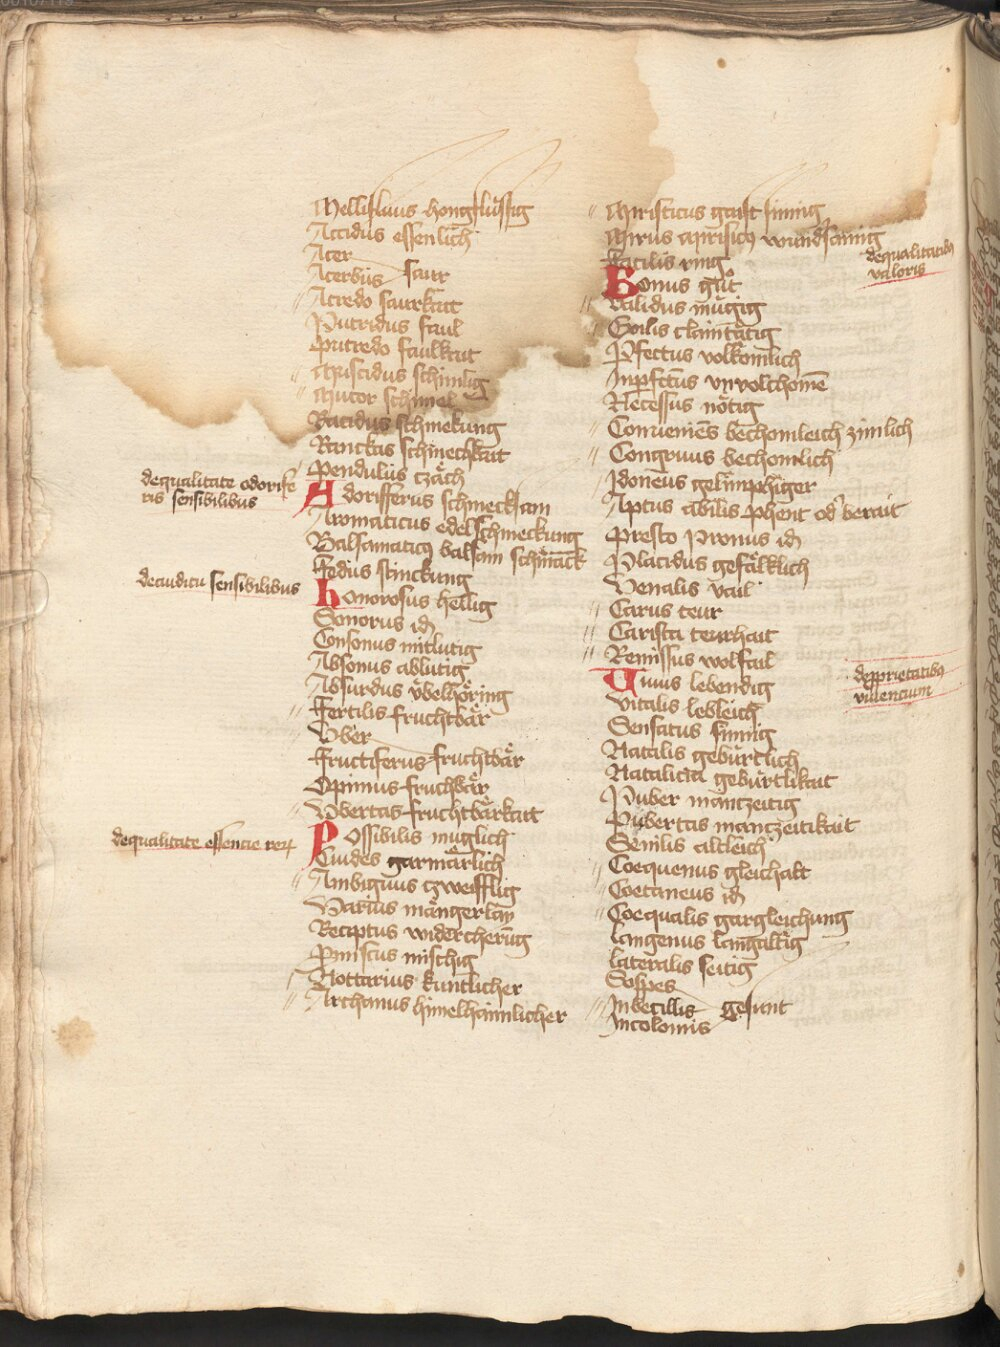 Mellifluus hongflussig
Accidus essenlich
Acer
Acerbus saur
Acredo saurkait
Putridus faul
Putredo faulkait
Muscidus schimlig
Mucor schimel
Racidus schmekung
Ranckas schmechkait
Pendulus czäch
dequalitate odorife
ris sensibilibus
Adorifferus schmecksam
Aromaticus edelschmeckung
Balsamaticus balsam schmack
Fedus stinckung
deauditu sensibilibus
honorosus hellig
Sonorus id
Consonus mitlutig
Absonus ablutig
Absurdus übelhöring
Fertilis fruchtbär
Vber
Fructiferus fruchtbär
Opimus fruchbär
Vbertas fruchtbärkait
dequalitate essencie rerum
Possibilis müglich
Euides garmärlich
Ambiguus czweifflig
Varius mangerlay
Receptus widercherung
Pmiscus mischig
Nottarius kuntlicher
Archanus himelhaimlicher
Mirificus
Mirus
Facilis ring
dequalitatibus
valoris
Bonus gut
Validus mügig
Exilis clainfätig
Pfectus volkomlich
Inpfectus vnvolchomē
Necessus nötig
Conueniens bechomleich zimlich
Congruus bechomlich
Idoneus gelimphiger
Aptus abilis phent od berait
Presto Pronus id
Placidus gefälklich
Venalis vail
Carus teur
Carista teurhait
Remissus wolfail
depprietatibus
viuencium
Viuus lebendig
Vitalis lebleich
Sensatus sinnig
Natalis gebürtlich
Natalicia gebürtlikait
Puber mantzeitig
Pubertas manczeitikait
Senilis altleich
Coequenus gleichalt
Coetaneus id
Coequalis gargleichung
Langenus langaltig
Lateralis seitig
Sospes
Inbecillis gesunt
Incolomis